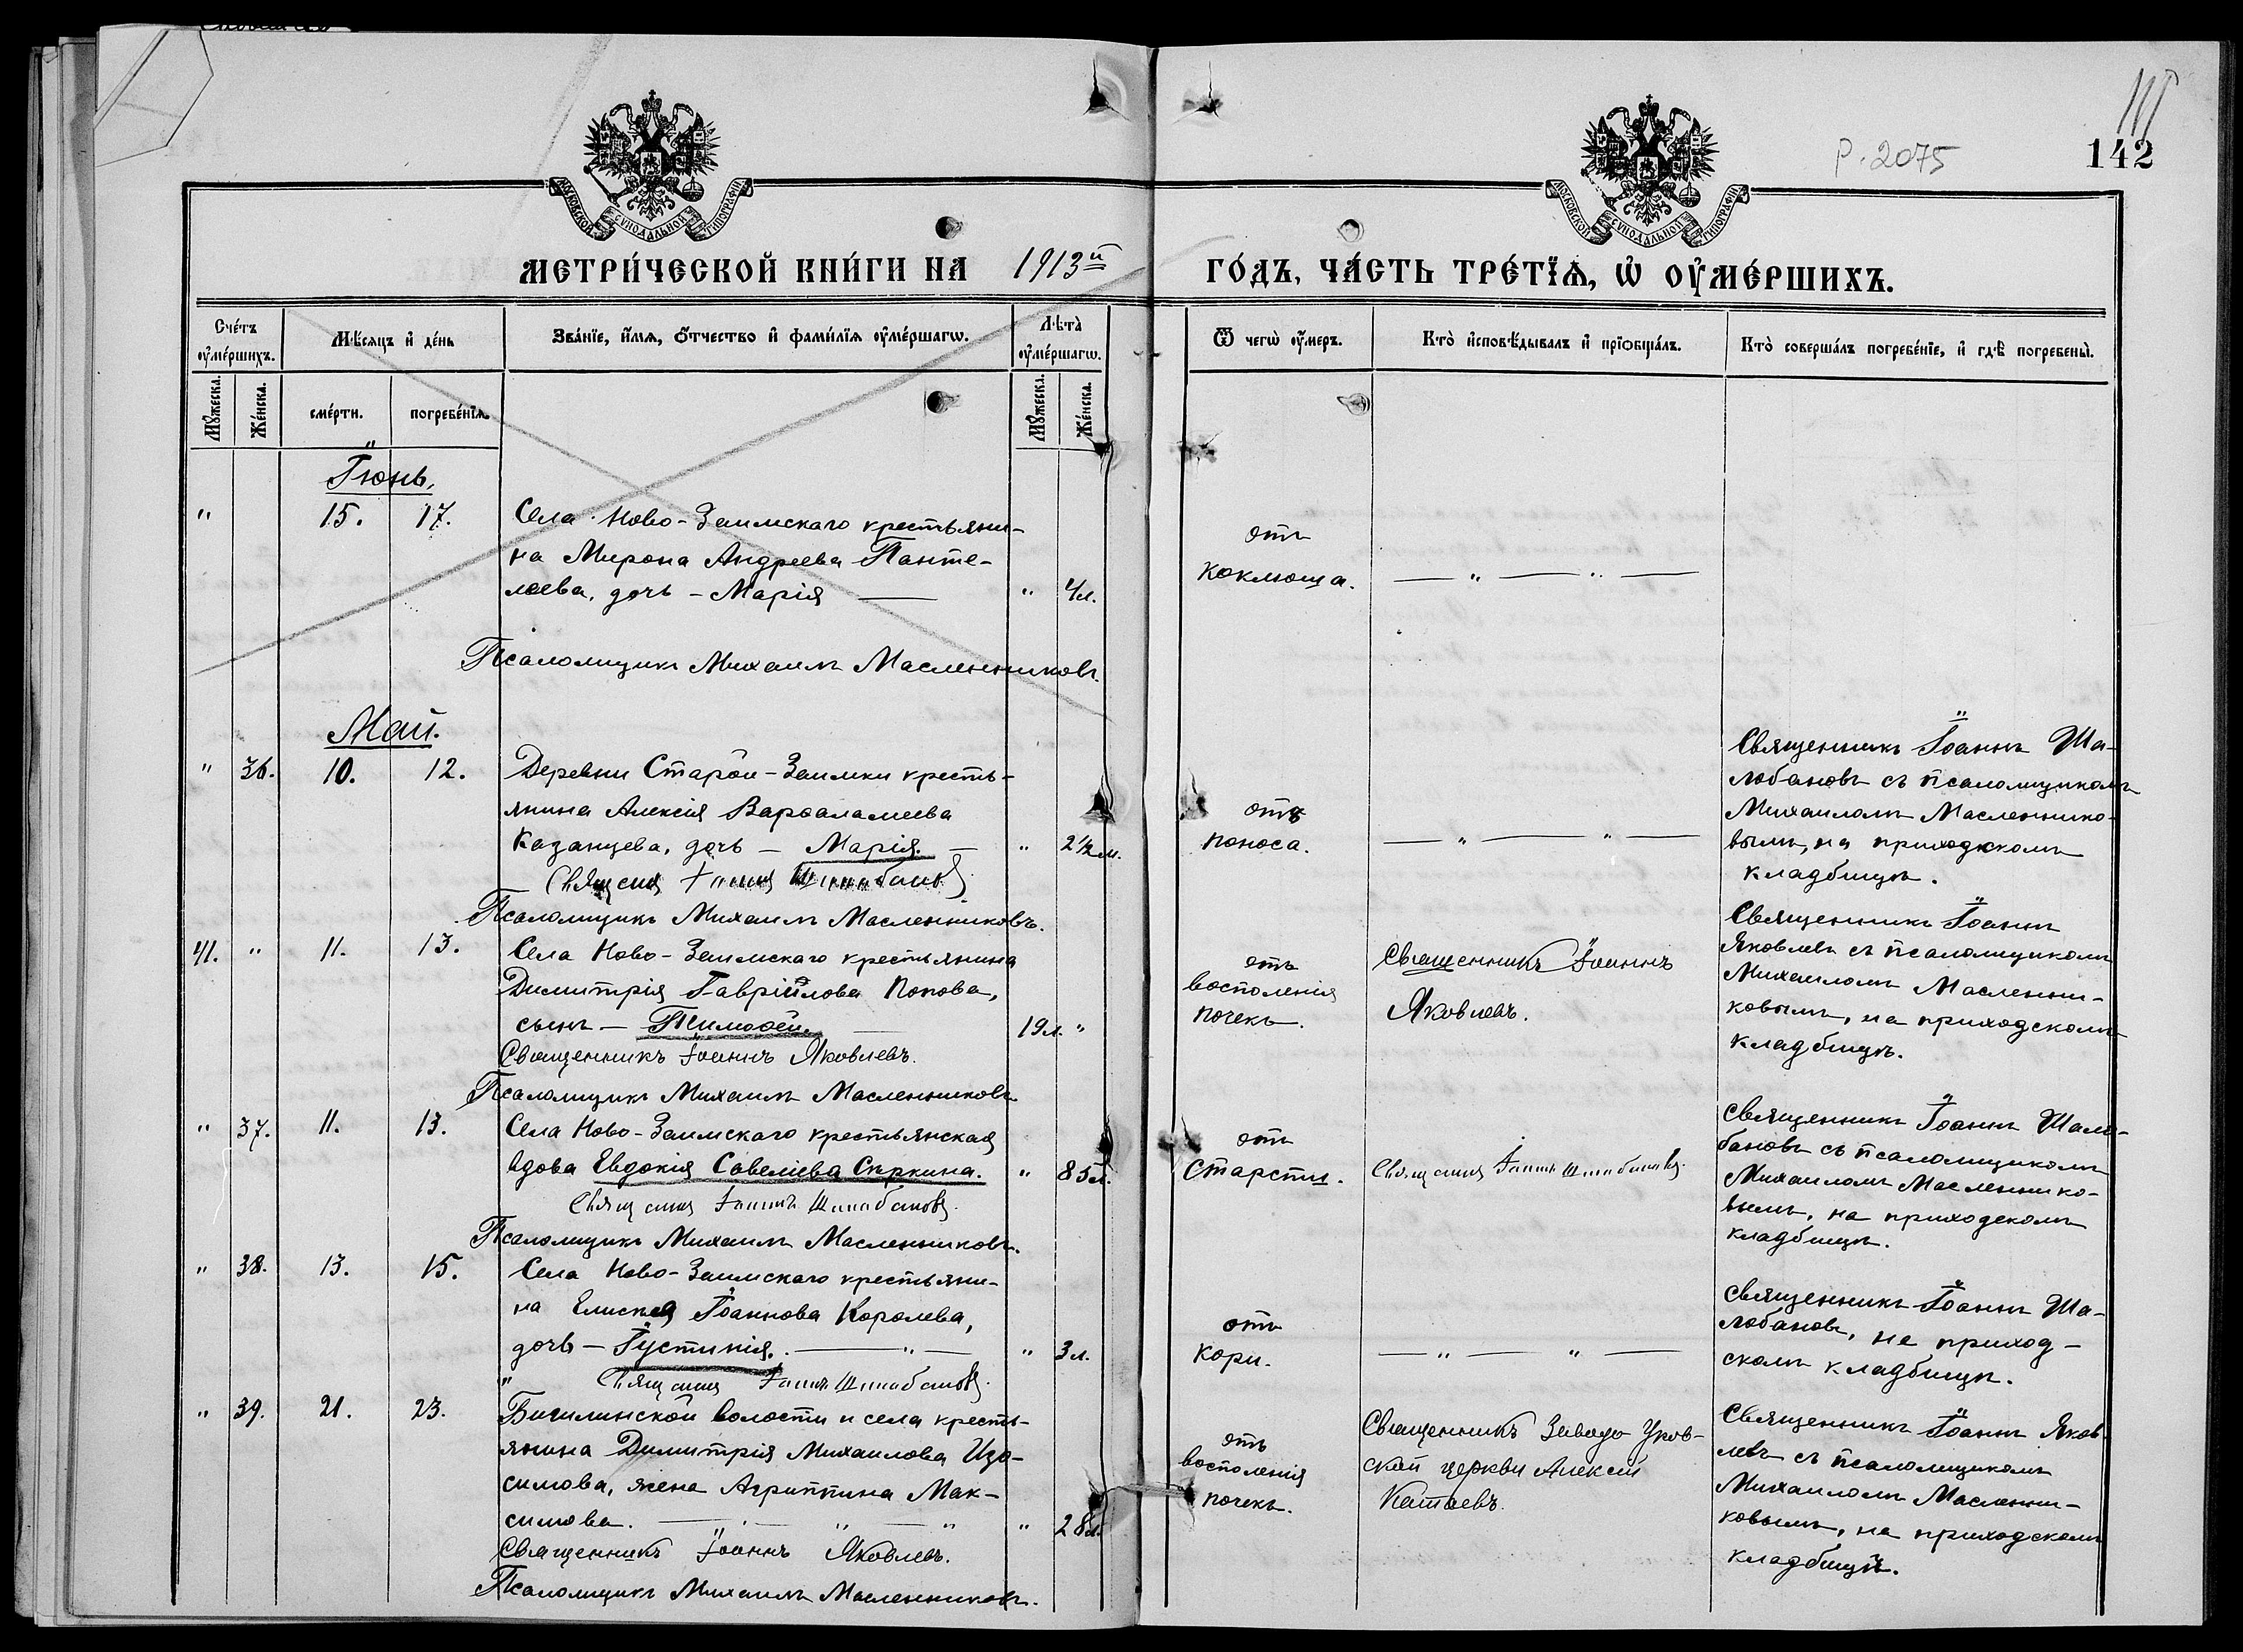 142
Р. 2075
МОСКОВСКОЙ СѴНОДАЛЬНОЙ ТИПОГРАФІИ
МОСКОВСКОЙ СѴНОДАЛЬНОЙ ТИПОГРАФІИ
МЕТРИ́ЧЕСКОЙ КНИ́ГИ НА 1913й ГО́ДЪ, ЧА́СТЬ ТРЕ́ТЇѦ, Ѡ҆ ОУ҆МЕ́РШИХЪ.
Сче́тъ оу҆ме́ршихъ.
Мѣ́сяцъ и҆ де́нь
Зва́нїе, и҆́мѧ, ѻ҆́тчество и҆ фами́лїѧ оу҆ме́ршагѡ.
Лѣ́та оу҆ме́ршагѡ.
Ѿ чегѡ̀ оу҆́меръ.
Кто̀ и҆сповѣ́дывалъ и҆ прїѡбща́лъ.
Кто̀ соверша́лъ погребе́нїе, и҆ гдѣ̀ погребены̀.
Мꙋ́жеска. Же́нска. сме́рти. погребе́нїѧ. Мꙋ́жеска. Же́нска.
Іюнь.
" 15. 17. Села Ново-Заимскаго крестьяни-
на Мирона Андреева Панте-
леева, дочь - Марія " 4 л.
отъ
коклюша. — " — " —
Псаломщикъ Михаилъ Масленниковъ.
Май.
" 36. 10. 12. Деревни Старой-Заимки кресть-
янина Алексія Варѳаламеева
Казанцева, дочь — Марія. — " 2½ м.
Священ Іоаннъ Шалобановъ
Псаломщикъ Михаилъ Масленниковъ.
отъ
поноса. — " — " —
Священникъ Іоаннъ Ша-
лобановъ съ псаломщикомъ
Михаиломъ Масленнико-
вымъ, на приходскомъ
кладбищѣ.
41. " 11. 13. Села Ново-Заимскаго крестьянина
Димитрія Гавріилова Попова,
сынъ — Тимоѳей. — 19 л. "
Священникъ Іоаннъ Яковлевъ.
Псаломщикъ Михаилъ Масленниковъ
отъ
восполенія
почекъ.
Священникъ Іоаннъ
Яковлевъ.
Священникъ Іоаннъ
Яковлевъ съ псаломщикомъ
Михаиломъ Масленни-
ковымъ, на приходскомъ
кладбищѣ.
" 37. 11. 13. Села Ново-Заимскаго крестьянская
вдова Евдокія Савеліева Скркина. " 85 л.
Священ Іоаннъ Шалобановъ.
Псаломщикъ Михаилъ Масленниковъ.
отъ
Старсти.
Священ Іоаннъ Шалобановъ.
Священникъ Іоаннъ Шало-
бановъ съ псаломщикомъ
Михаиломъ Масленнико-
вымъ, на приходскомъ
кладбищѣ.
" 38. 13. 15. Села Ново-Заимскаго крестьяни-
на Елисея Іоаннова Королева,
дочь — Іустинія. — " — " 3 л.
Священ Іоаннъ Шалобановъ.
отъ
кори. — " — " —
Священникъ Іоаннъ Ша-
лобановъ, на приход-
скомъ кладбищѣ.
" 39. 21. 23. Бигилинской волости и села кресть-
янина Димитрія Михаилова Изо-
симова, жена Агриппина Мак-
симова. — " — " " 28 л.
Священникъ Іоаннъ Яковлевъ.
Псаломщикъ Михаилъ Масленниковъ.
отъ
восполенія
почекъ.
Священникъ Заводо Уков-
ской церкви Алексій
Катаевъ.
Священникъ Іоаннъ Яков-
левъ съ псаломщикомъ
Михаиломъ Масленни-
ковымъ, на приходскомъ
кладбищѣ.